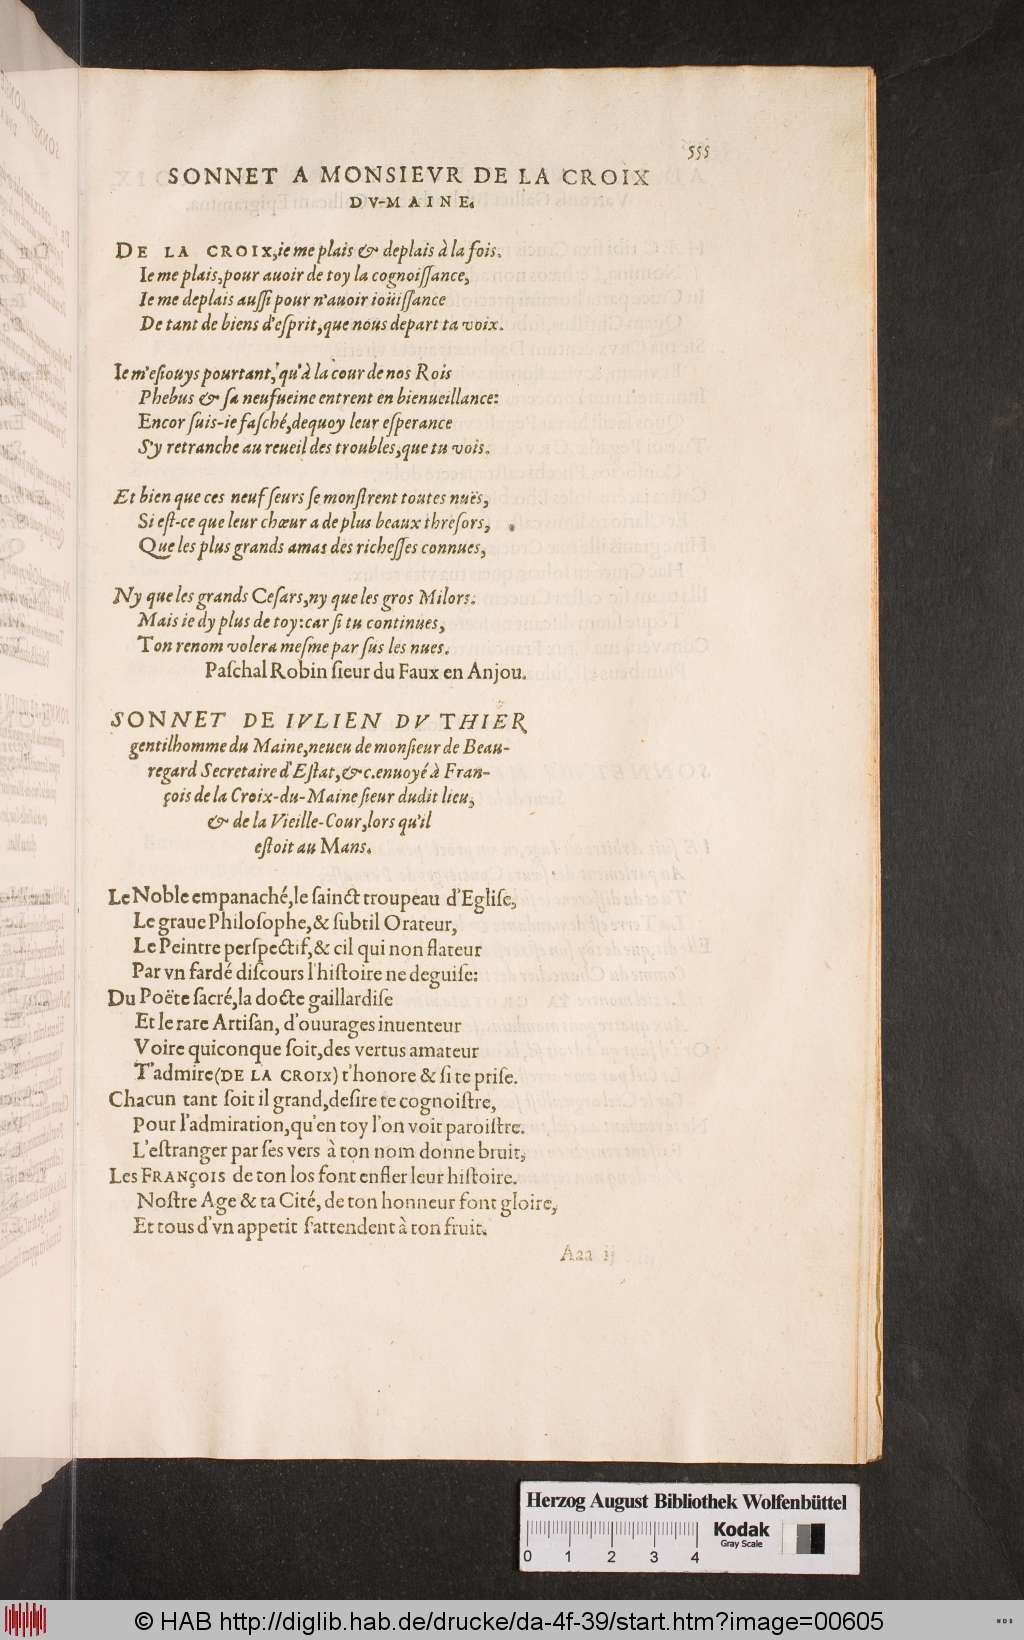 555
SONNET A MONSIEVR DE LA CROIX
DV-MAINE.
DE LA CROIX,ie me plais & deplais à la fois.
Ie me plais,pour auoir de toy la cognoiſſance,
Ie me deplais auſſi pour n'auoir ioüiſſance
De tant de biens d'eſprit,que nous depart ta voix.
Ie m'eſiouys pourtant, qu'à la cour de nos Rois
Phebus & ſa neufueine entrent en bienueillance:
Encor ſuis-ie faſché,dequoy leur eſperance
S'y retranche au reueil des troubles,que tu vois.
Et bien que ces neuf ſeurs ſe monſtrent toutes nuës,
Si eſt-ce que leur chœur a de plus beaux threſors,
Que les plus grands amas des richeſſes connues,
Ny que les grands Ceſars,ny que les gros Milors.
Mais ie dy plus de toy:car ſi tu continües,
Ton renom volera meſme par ſus les nues.
Paſchal Robin ſieur du Faux en Anjou.
SONNET DE IVLIEN DV THIER
gentilhomme du Maine,neueu de monſieur de Beau-
regard Secretaire d'Eſtat,&c.enuoyé à Fran-
çois de la Croix-du-Maine ſieur dudit lieu,
& de la Vieille-Cour,lors qu'il
eſtoit au Mans.
Le Noble empanaché,le ſainct troupeau d'Egliſe,
Le graue Philoſophe,& ſubtil Orateur,
Le Peintre perſpectif,& cil qui non flateur
Par vn fardé diſcours l'hiſtoire ne deguiſe:
Du Poëte ſacré,la docte gaillardiſe
Et le rare Artiſan, d'ouurages inuenteur
Voire quiconque ſoit,des vertus amateur
T'admire(DE LA CROIX) t'honore & ſi te priſe.
Chacun tant ſoit il grand,deſire te cognoiſtre,
Pour l'admiration,qu'en toy l'on voit paroiſtre.
L'eſtranger par ſes vers à ton nom donne bruit,
Les FRANÇOIS de ton los font enfler leur hiſtoire.
Noſtre Age & ta Cité, de ton honneur font gloire,
Et tous d'vn appetit ſ'attendent à ton fruit.
Aaa ij
Herzog August Bibliothek Wolfenbüttel
0 1 2 3 4
Kodak
Gray Scale
© HAB http://diglib.hab.de/drucke/da-4f-39/start.htm?image=00605